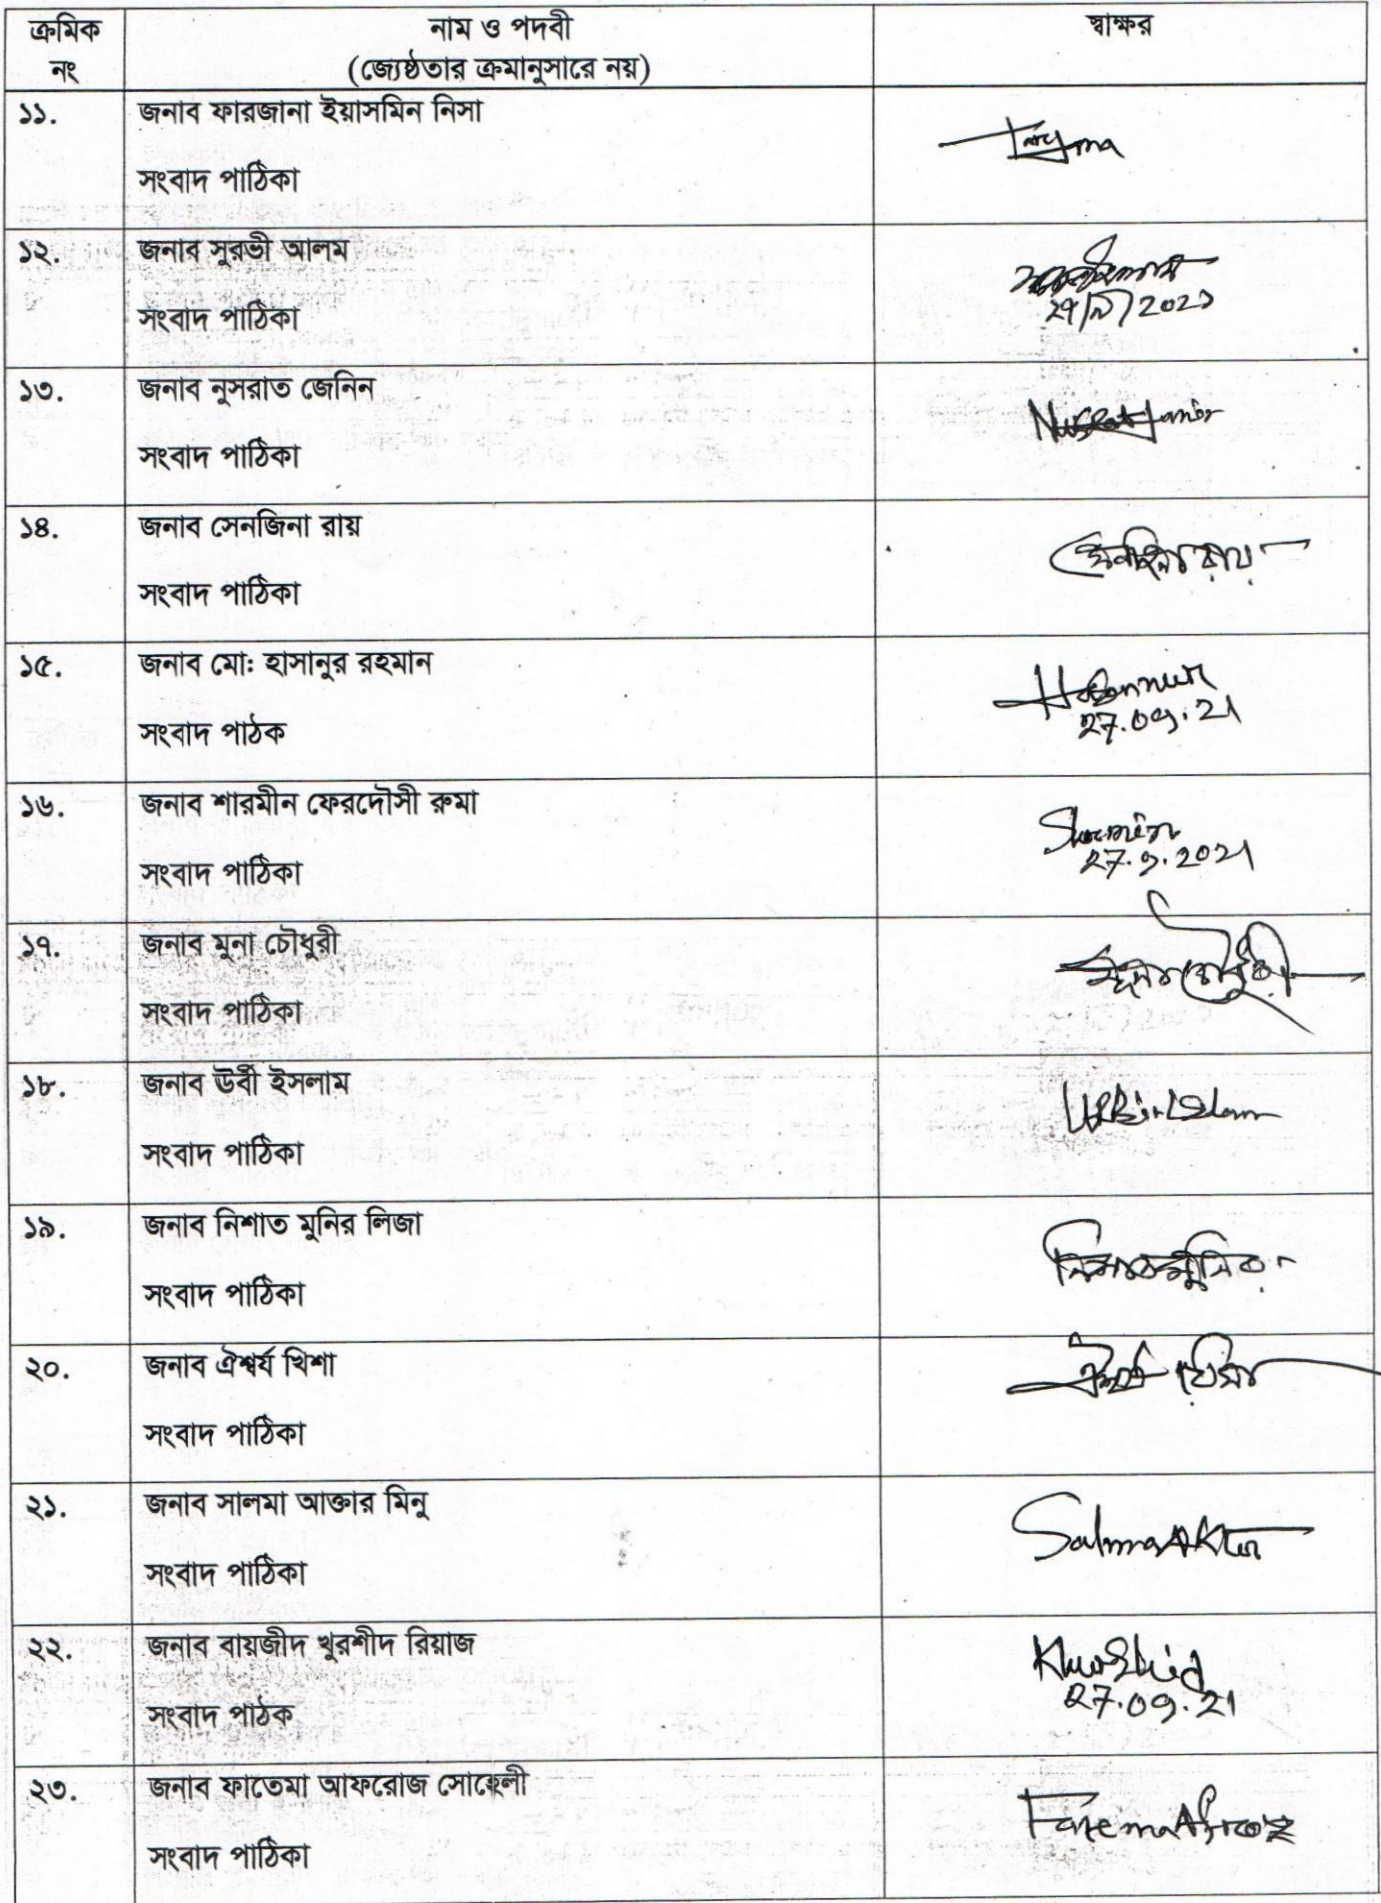 ক্রমিক নং
নাম ও পদবী
(জ্যেষ্ঠতার ক্রমানুসারে নয়)
স্বাক্ষর
১১.
জনাব ফারজানা ইয়াসমিন নিসা
সংবাদ পাঠিকা
১২.
জনাব সুরভী আলম
সংবাদ পাঠিকা
২৭/৯/2021
১৩.
জনাব নুসরাত জেনিন
সংবাদ পাঠিকা
Nusrat Janin
১৪.
জনাব সেনজিনা রায়
সংবাদ পাঠিকা
সেনজিনা রায়
১৫.
জনাব মো: হাসানুর রহমান
সংবাদ পাঠক
Hasannur
27.09.21
১৬.
জনাব শারমীন ফেরদৌসী রুমা
সংবাদ পাঠিকা
Sharmin
27.9.2021
১৭.
জনাব মুনা চৌধুরী
সংবাদ পাঠিকা
মুনা চৌধুরী
১৮.
জনাব ঊর্বী ইসলাম
সংবাদ পাঠিকা
Urbi Islam
১৯.
জনাব নিশাত মুনির লিজা
সংবাদ পাঠিকা
নিশাত মুনির
২০.
জনাব ঐশ্বর্য খিশা
সংবাদ পাঠিকা
ঐশ্বর্য খিশা
২১.
জনাব সালমা আক্তার মিনু
সংবাদ পাঠিকা
Salma Akter
২২.
জনাব বায়জীদ খুরশীদ রিয়াজ
সংবাদ পাঠক
Khurshid
27.09.21
২৩.
জনাব ফাতেমা আফরোজ সোহেলী
সংবাদ পাঠিকা
Fatema Afroz